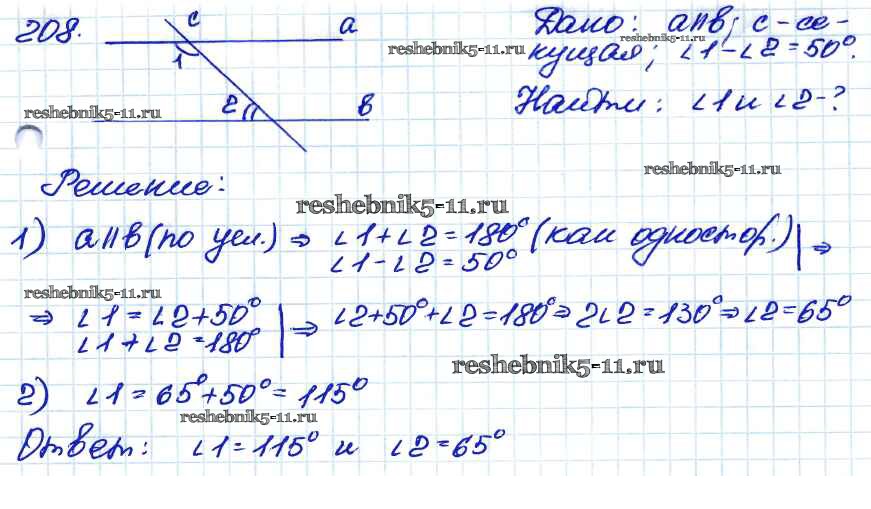 208. c a Дано: a||в; c-се-
1 reshebnik5-11.ru reshebnik5-11.ru
кущая; ∠1-∠2=50°.
2 в Найти: ∠1 и ∠2-?
reshebnik5-11.ru
reshebnik5-11.ru
Решение:
reshebnik5-11.ru
1) a||в (по усл.) ⇒ ∠1+∠2=180° (как одностор.) | ⇒
∠1-∠2=50°
reshebnik5-11.ru
⇒ ∠1=∠2+50° | ⇒ ∠2+50°+∠2=180° ⇒ 2∠2=130° ⇒ ∠2=65°
∠1+∠2=180°
reshebnik5-11.ru
2) ∠1=65°+50°=115°
reshebnik5-11.ru
Ответ: ∠1=115° и ∠2=65°